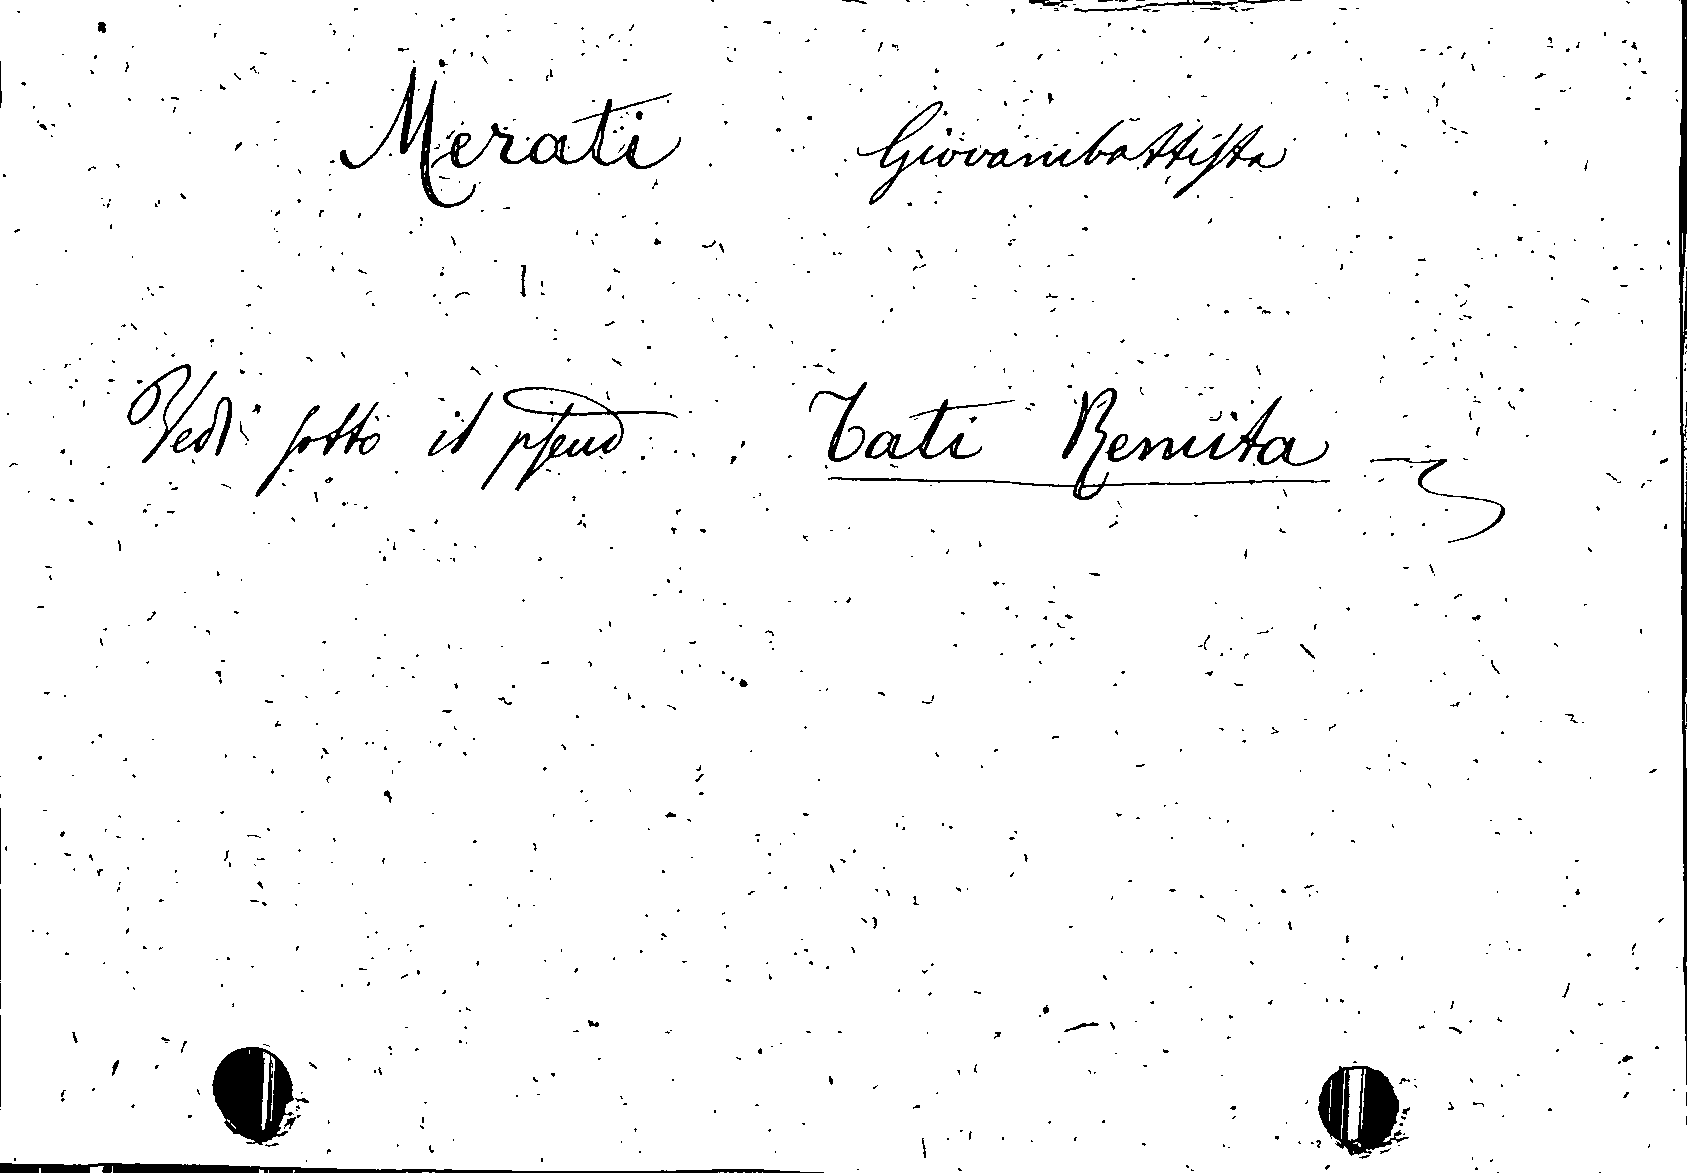 Merati Giovambattista
Vedi sotto il pseud : Tati Remita